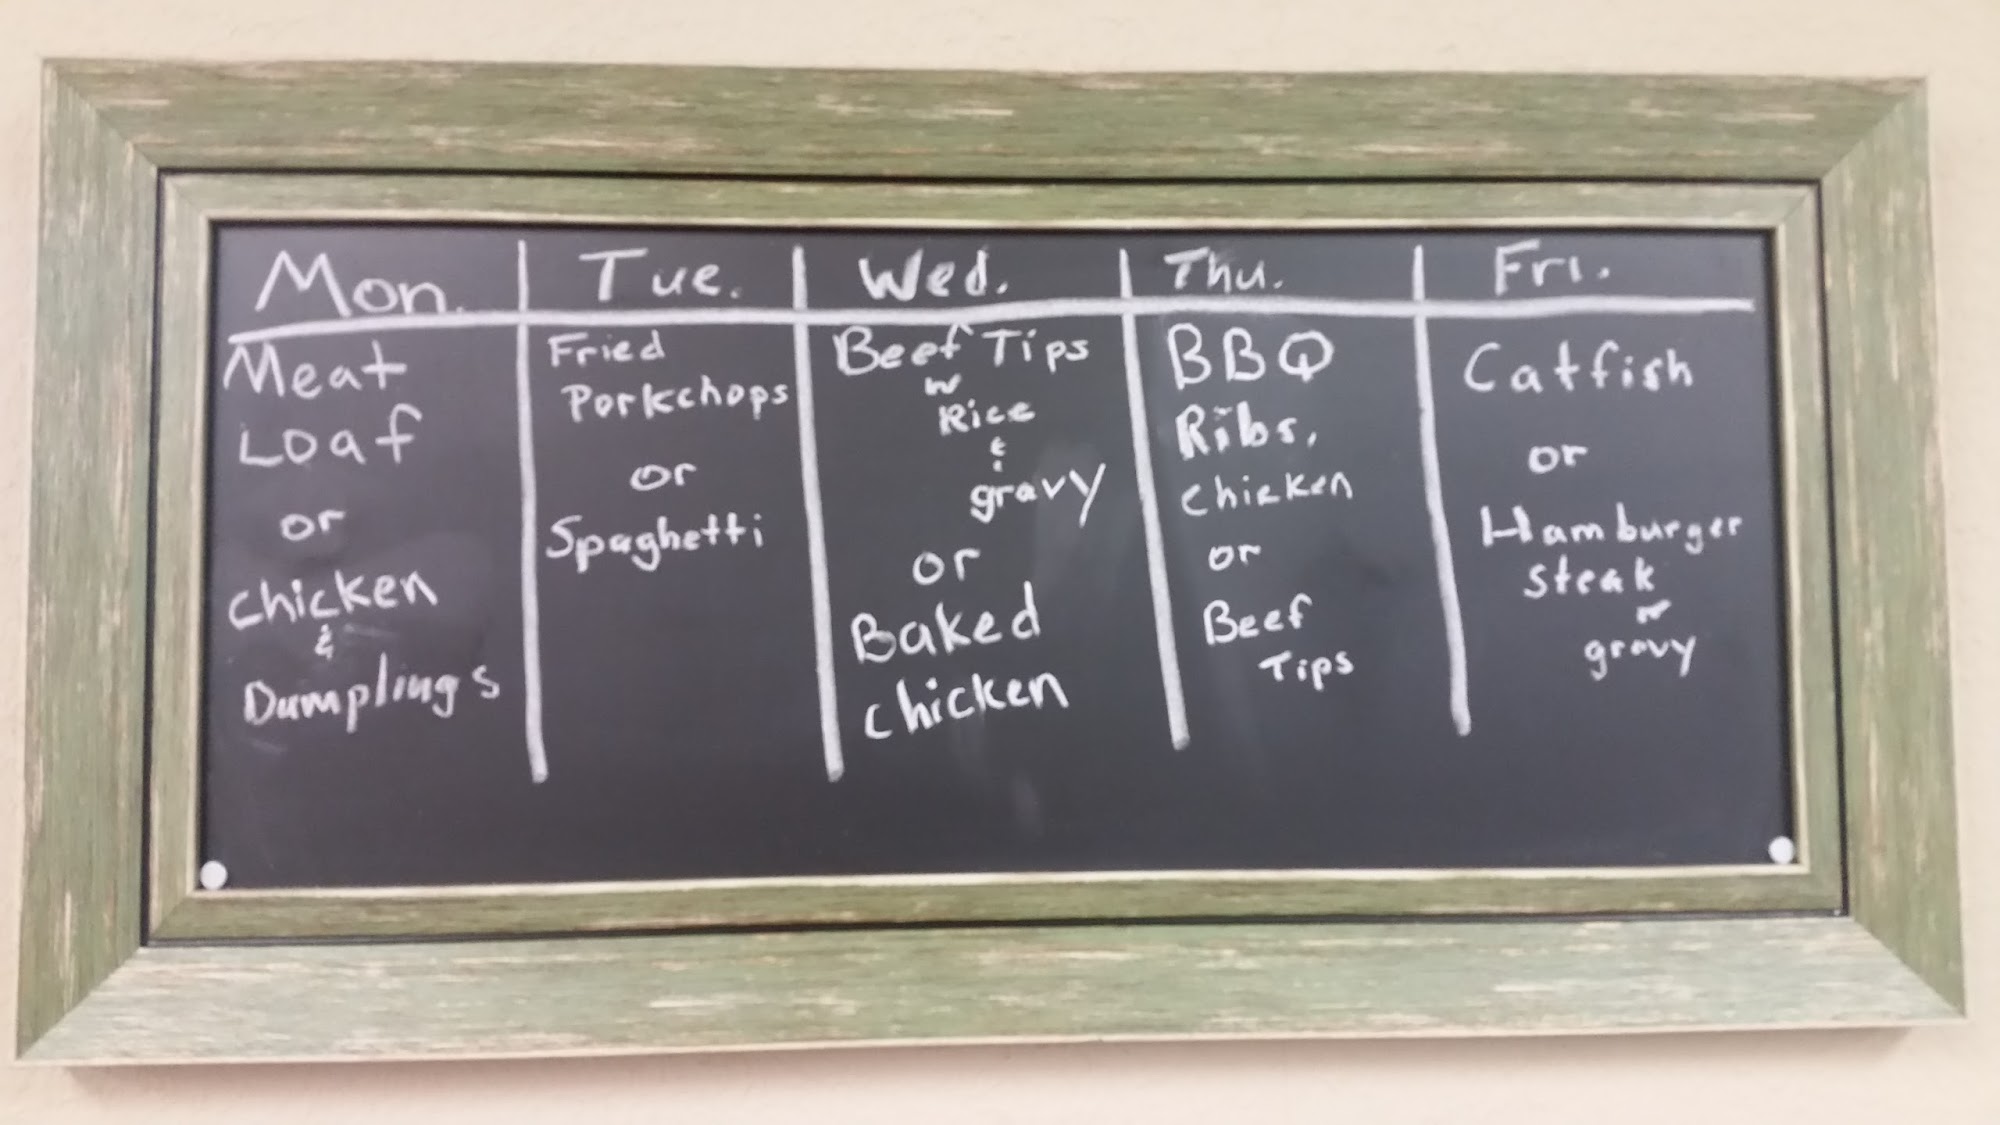 Mon.
Meat
Loaf
or
Chicken
&
Dumplings
Tue.
Fried
Porkchops
or
Spaghetti
Wed.
Beef Tips
w
Rice
&
gravy
or
Baked
chicken
Thu.
BBQ
Ribs,
chicken
or
Beef
Tips
Fri.
Catfish
or
Hamburger
steak
w
gravy